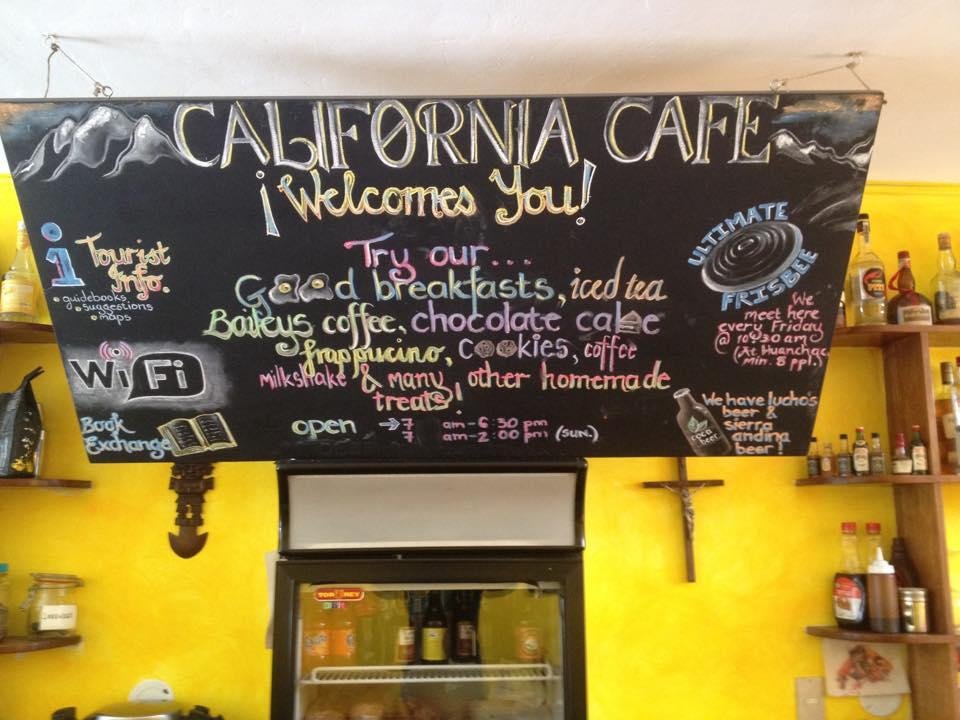 CALIFORNIA CAFE
¡Welcomes You!
i Tourist
Info.
• guidebooks
• suggestions
• maps
WiFi
Book
Exchange
Try our...
Good breakfasts, iced tea
Baileys coffee, chocolate cake
frappucino, COOKIES, coffee
milkshake & many other homemade
treats!
open → 7 am - 6:30 pm
7 am - 2:00 pm (SUN.)
ULTIMATE
FRISBEE
We
meet here
every Friday
@ 10:30 am
(At Huanchac
Min. 8 ppl.)
We have lucho's
beer &
sierra
andina
beer!
coca
beer